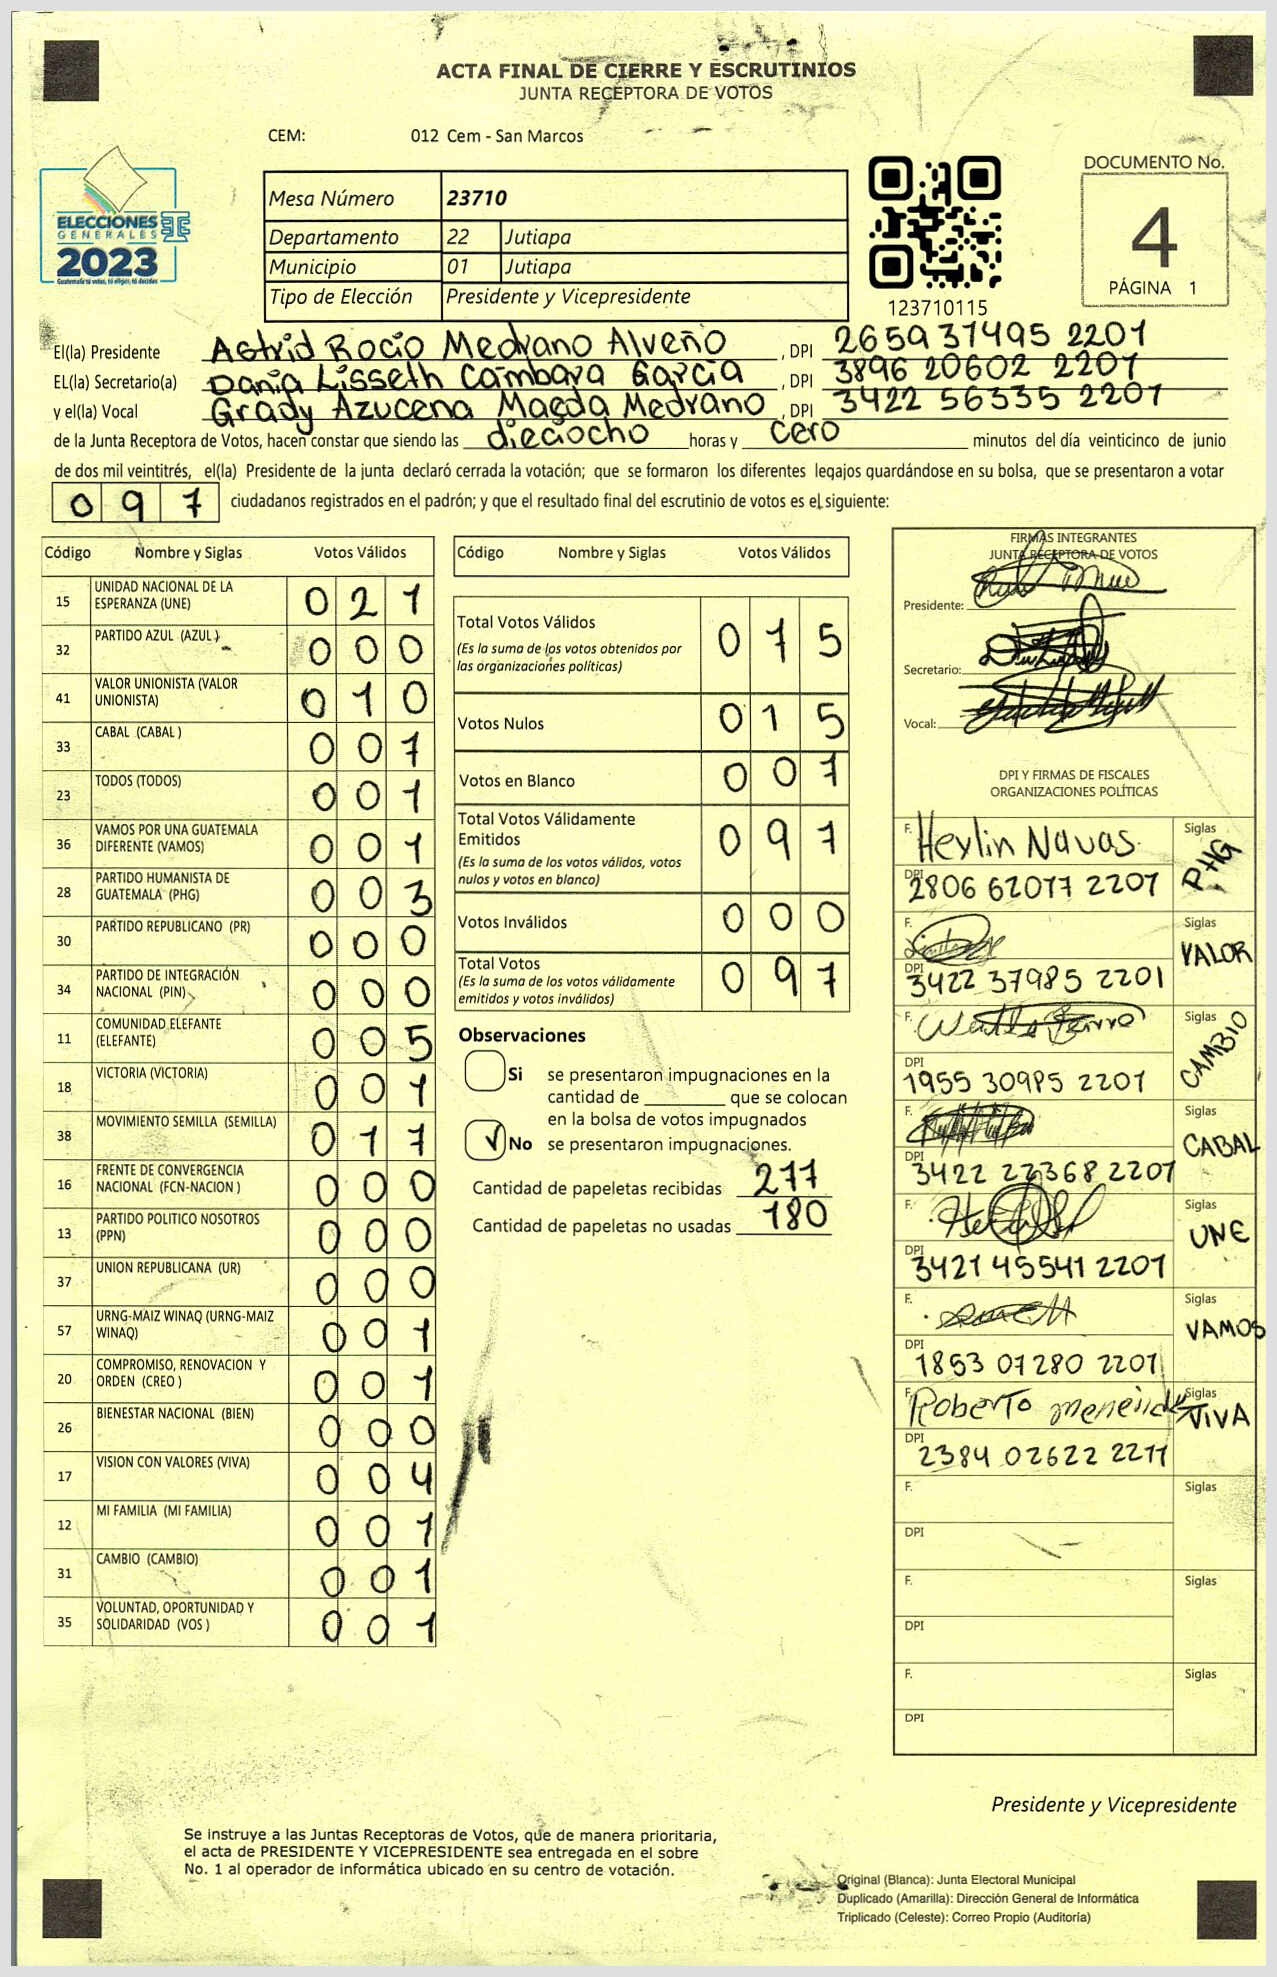 ACTA FINAL DE CIERRE Y ESCRUTINIOS
JUNTA RECEPTORA DE VOTOS
CEM: 012 Cem - San Marcos
ELECCIONES
GENERALES
2023
Guatemala tú votas, tú eliges, tú decides
Mesa Número 23710
Departamento 22 Jutiapa
Municipio 01 Jutiapa
Tipo de Elección Presidente y Vicepresidente
123710115
DOCUMENTO No.
4
PÁGINA 1
El(la) Presidente Astrid Rocío Medrano Alveño , DPI 2659 37495 2201
EL(la) Secretario(a) Dania Lisseth Cámbara García , DPI 3896 20602 2201
y el(la) Vocal Grady Azucena Magda Medrano , DPI 3422 56335 2201
de la Junta Receptora de Votos, hacen constar que siendo las dieciocho horas y cero minutos del día veinticinco de junio
de dos mil veintitrés, el(la) Presidente de la junta declaró cerrada la votación; que se formaron los diferentes legajos guardándose en su bolsa, que se presentaron a votar
097 ciudadanos registrados en el padrón; y que el resultado final del escrutinio de votos es el siguiente:
Código Nombre y Siglas Votos Válidos
15 UNIDAD NACIONAL DE LA ESPERANZA (UNE) 021
32 PARTIDO AZUL (AZUL ) 000
41 VALOR UNIONISTA (VALOR UNIONISTA) 010
33 CABAL (CABAL ) 007
23 TODOS (TODOS) 001
36 VAMOS POR UNA GUATEMALA DIFERENTE (VAMOS) 001
28 PARTIDO HUMANISTA DE GUATEMALA (PHG) 003
30 PARTIDO REPUBLICANO (PR) 000
34 PARTIDO DE INTEGRACIÓN NACIONAL (PIN) 000
11 COMUNIDAD ELEFANTE (ELEFANTE) 005
18 VICTORIA (VICTORIA) 001
38 MOVIMIENTO SEMILLA (SEMILLA) 017
16 FRENTE DE CONVERGENCIA NACIONAL (FCN-NACION ) 000
13 PARTIDO POLITICO NOSOTROS (PPN) 000
37 UNION REPUBLICANA (UR) 000
57 URNG-MAIZ WINAQ (URNG-MAIZ WINAQ) 001
20 COMPROMISO, RENOVACION Y ORDEN (CREO ) 001
26 BIENESTAR NACIONAL (BIEN) 000
17 VISION CON VALORES (VIVA) 004
12 MI FAMILIA (MI FAMILIA) 001
31 CAMBIO (CAMBIO) 001
35 VOLUNTAD, OPORTUNIDAD Y SOLIDARIDAD (VOS ) 001
Código Nombre y Siglas Votos Válidos
Total Votos Válidos 075
(Es la suma de los votos obtenidos por
las organizaciones políticas)
Votos Nulos 015
Votos en Blanco 007
Total Votos Válidamente
Emitidos 097
(Es la suma de los votos válidos, votos
nulos y votos en blanco)
Votos Inválidos 000
Total Votos 097
(Es la suma de los votos válidamente
emitidos y votos inválidos)
Observaciones
Si se presentaron impugnaciones en la
cantidad de ________ que se colocan
en la bolsa de votos impugnados
No se presentaron impugnaciones.
Cantidad de papeletas recibidas 277
Cantidad de papeletas no usadas 180
FIRMAS INTEGRANTES
JUNTA RECEPTORA DE VOTOS
Presidente:
Secretario:
Vocal:
DPI Y FIRMAS DE FISCALES
ORGANIZACIONES POLÍTICAS
F. Heylin Navas. Siglas PHG
DPI 2806 62077 2201
F. Siglas VALOR
DPI 3422 37985 2201
F. Siglas CAMBIO
DPI 1955 30985 2201
F. Siglas CABAL
DPI 3422 22368 2201
F. Siglas UNE
DPI 3421 45541 2201
F. Siglas VAMOS
DPI 1853 07280 2201
F. Roberto Siglas VIVA
DPI 2384 02622 2211
F. Siglas
DPI
F. Siglas
DPI
F. Siglas
DPI
Presidente y Vicepresidente
Se instruye a las Juntas Receptoras de Votos, que de manera prioritaria,
el acta de PRESIDENTE Y VICEPRESIDENTE sea entregada en el sobre
No. 1 al operador de informática ubicado en su centro de votación.
Original (Blanca): Junta Electoral Municipal
Duplicado (Amarilla): Dirección General de Informática
Triplicado (Celeste): Correo Propio (Auditoría)